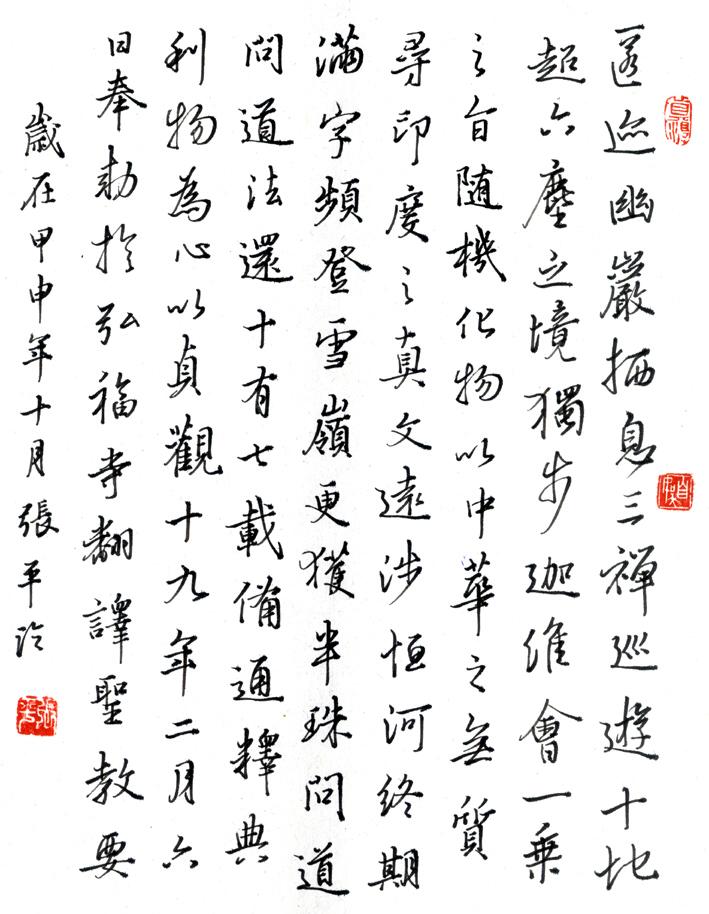 匿迹幽巖栖息三禪巡遊十地
超六塵之境獨步迦維會一乘
之旨随機化物以中華之無質
尋印度之真文遠涉恒河終期
滿字頻登雪嶺更獲半珠問道
問道法還十有七載備通釋典
利物為心以貞觀十九年二月六
日奉勅於弘福寺翻譯聖教要
歲在甲申年十月張平